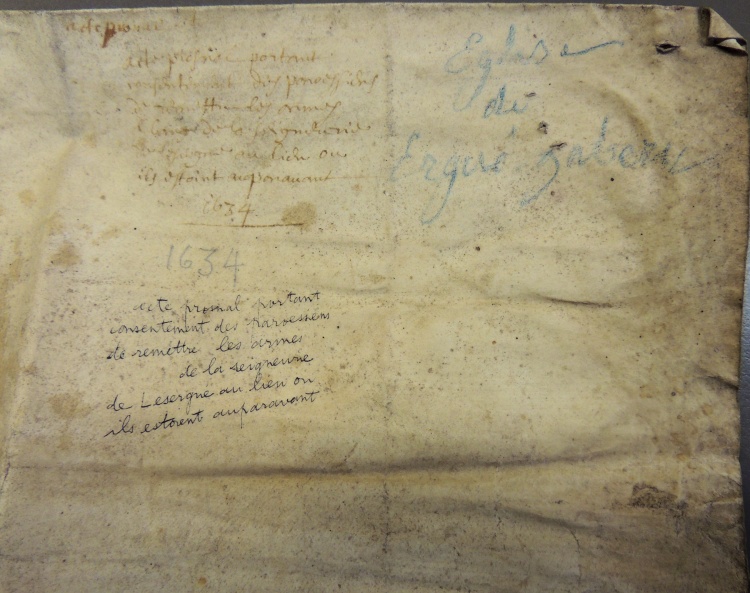 acte prosnal portant
consentement des paroessiens
de remettre les armes
et lines de la seigneurie
au lieu ou
ils estoint auparavant
1634
Eglise
de
Ergué gabéric
1634
acte prosnal portant
consentement des paroessiens
de remettre les armes
de la seigneurie
de Lesergué au lieu ou
ils estoient auparavant